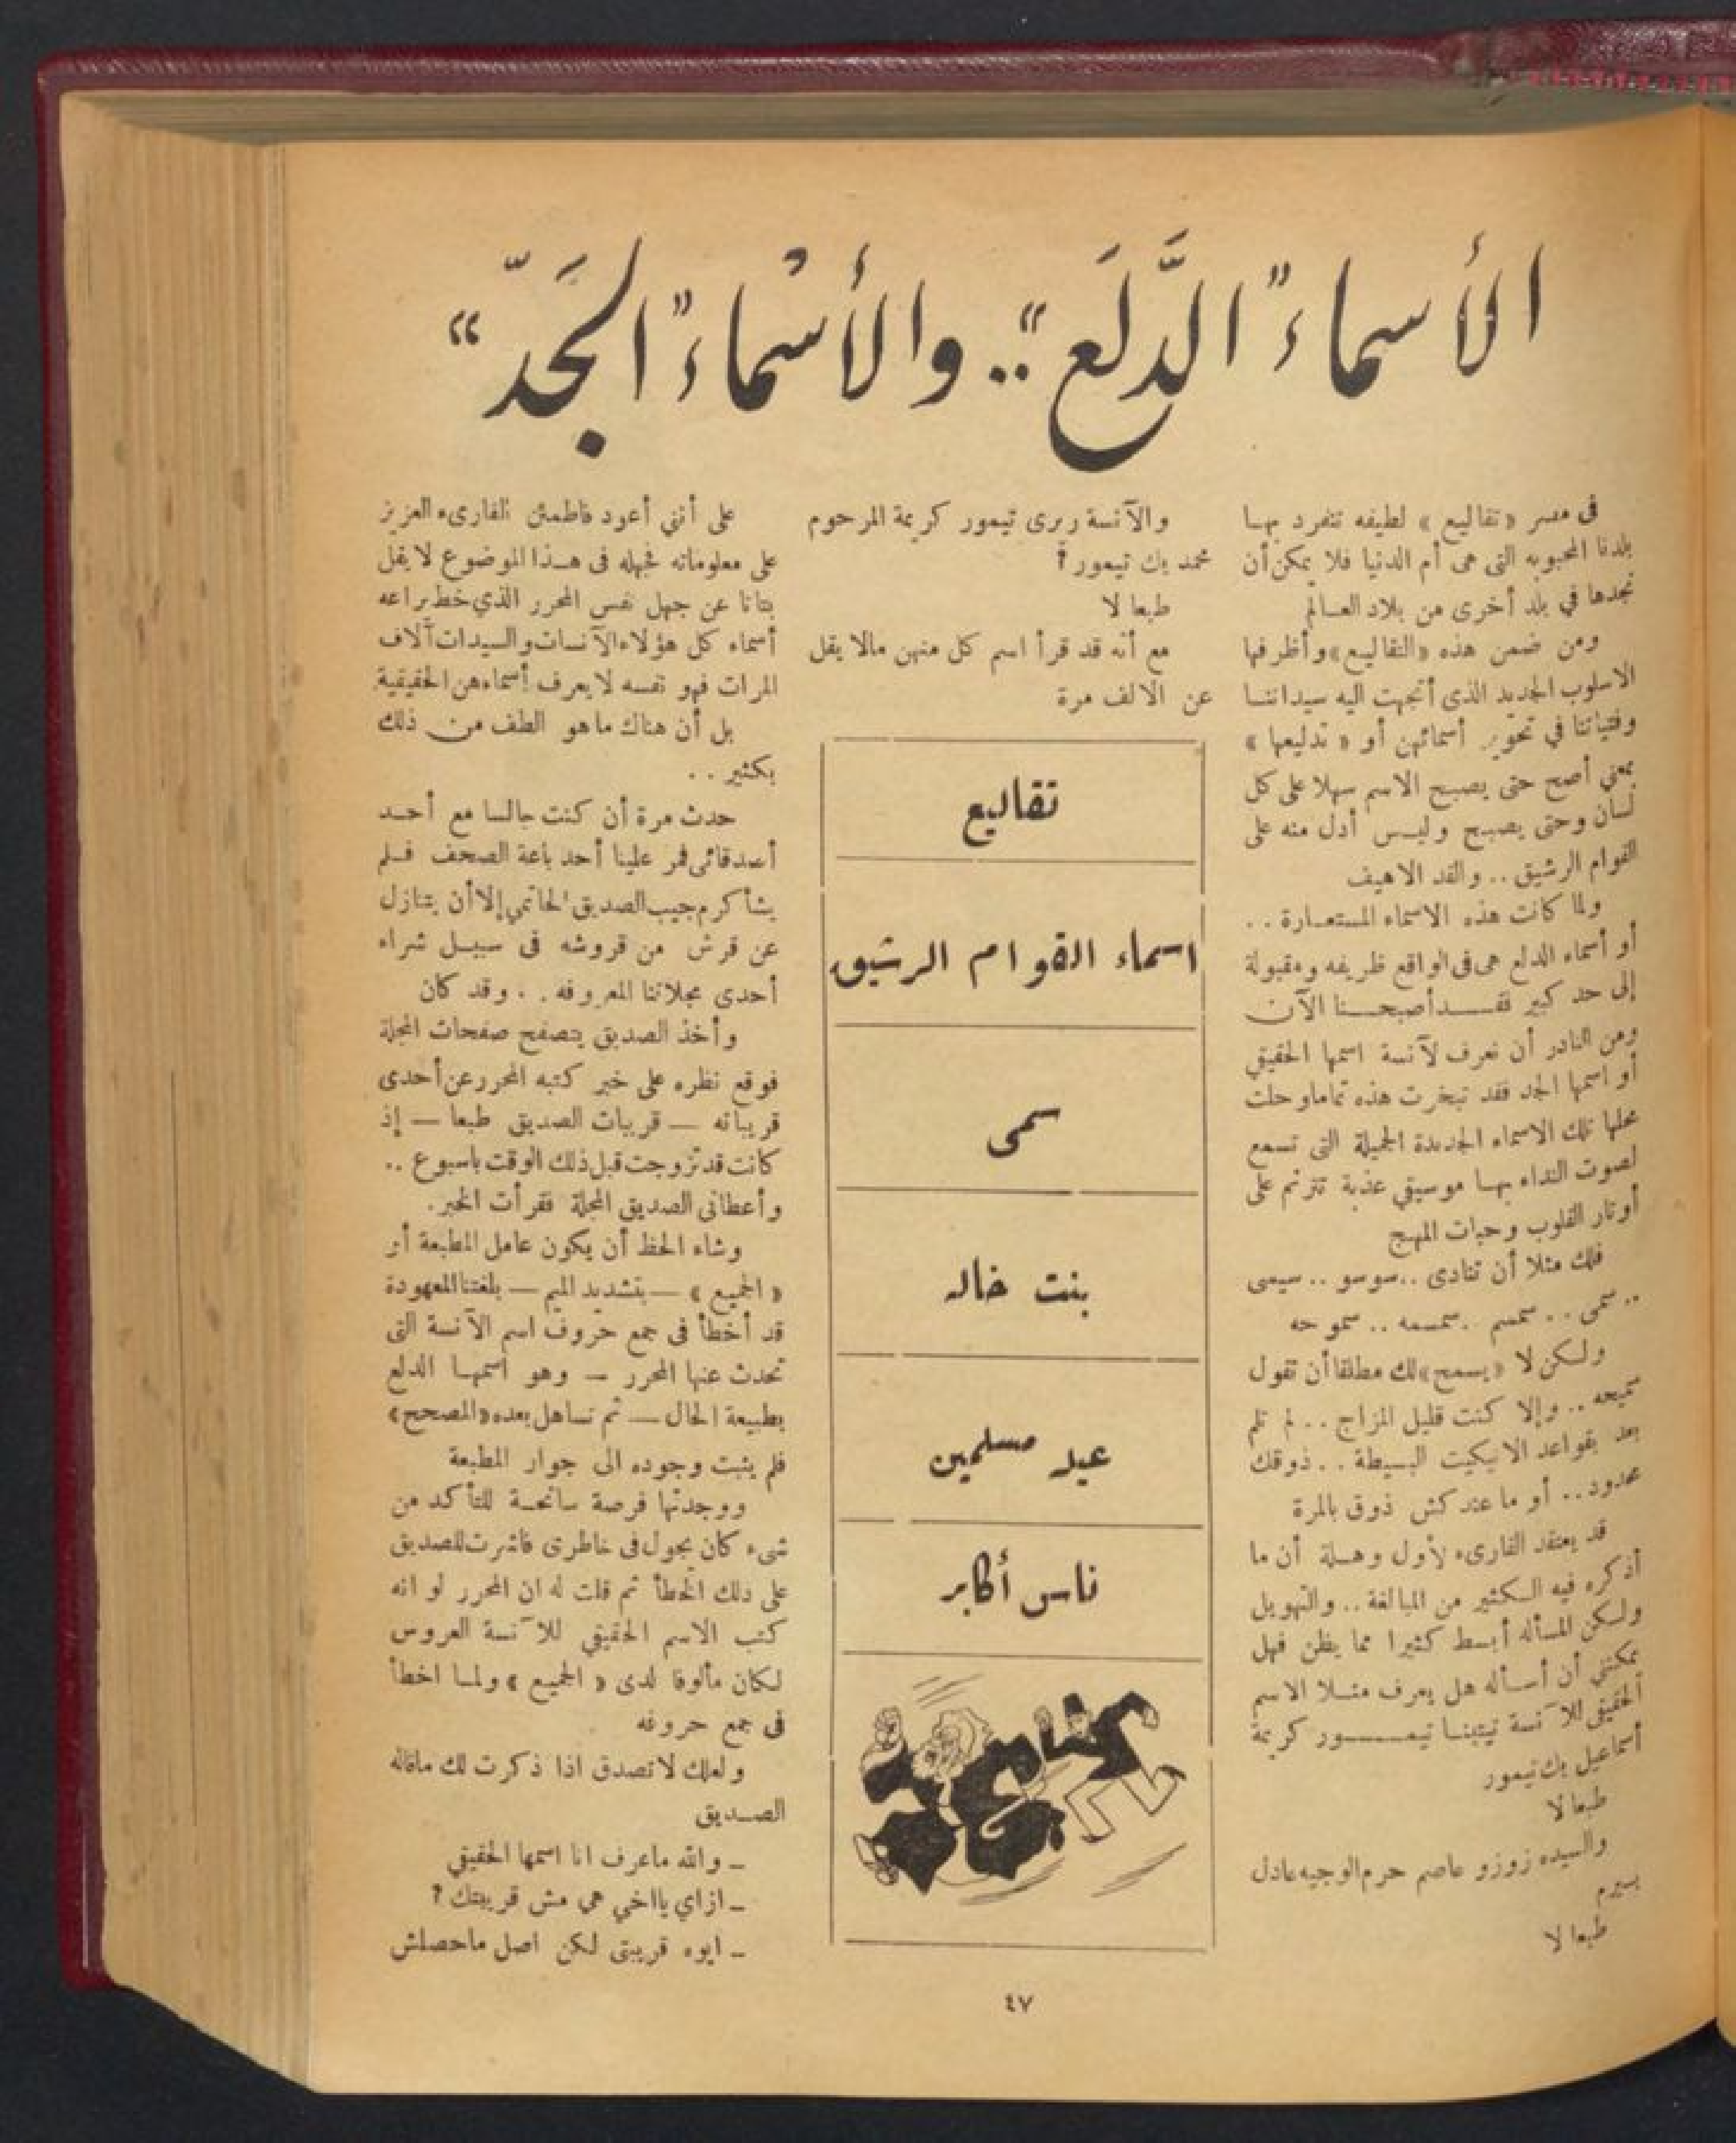 الأسماء "الدَّلَع".. والأسْماء "الجَدّ"
فى مصر «تقاليع» لطيفه تنفرد بها
بلدنا المحبوبه التى هى أم الدنيا فلا يمكن أن
نجدها في بلد أخرى من بلاد العالم
ومن ضمن هذه «التقاليع» وأظرفها
الاسلوب الجديد الذى أتجهت اليه سيداتنا
وفتياتنا في تحوير أسمائهن أو «تدليعها»
بمعنى أصح حتى يصبح الاسم سهلا على كل
لسان وحتى يصبح وليس أدل منه على
القوام الرشيق .. والقد الاهيف
ولما كانت هذه الاسماء المستعارة ..
أو أسماء الدلع هى فى الواقع ظريفه ومقبولة
إلى حد كبير فقد أصبحنا الآن
ومن النادر أن نعرف لآنسة اسمها الحقيقي
أو اسمها الجد فقد تبخرت هذه تماما وحلت
محلها تلك الاسماء الجديدة الجميلة التى تسمع
لصوت النداء بها موسيقي عذبة تترنم على
أوتار القلوب وحبات المهج
فلك مثلا أن تنادى .. سوسو .. سيمى
.. سمى .. سمسم .. سمسمه .. سموحه
ولكن لا «يسمح» لك مطلقا أن تقول
سميحه .. وإلا كنت قليل المزاج .. لم تلم
بعد بقواعد الاتيكيت البسيطة .. ذوقك
محدود .. أو ما عندكش ذوق بالمرة
قد يعتقد القارىء لأول وهلة أن ما
أذكره فيه الكثير من المبالغة .. والتهويل
ولكن المسأله أبسط كثيرا مما يظن فهل
يمكننى أن أسأله هل يعرف مثلا الاسم
الحقيقى للآنسة تيتينا تيمور كريمة
أسماعيل بك تيمور
طبعا لا
والسيده زوزو عاصم حرم الوجيه عادل
يسرم
طبعا لا
والآنسة ريرى تيمور كريمة المرحوم
محمد بك تيمور ؟
طبعا لا
مع أنه قد قرأ اسم كل منهن مالا يقل
عن الالف مرة
تقاليع
اسماء القوام الرشيق
سمى
بنت خاله
عيد مسلمين
ناس أكابر
على أنني أعود فاطمئن القارىء العزيز
على معلوماته فجهله فى هذا الموضوع لا يقل
بتاتا عن جهل نفس المحرر الذي خط براعه
أسماء كل هؤلاء الآنسات والسيدات آلاف
المرات فهو نفسه لا يعرف أسماءهن الحقيقية
بل أن هناك ما هو الطف من ذلك
بكثير ..
حدث مرة أن كنت جالسا مع أحد
أصدقائى فمر علينا أحد باعة الصحف فلم
يشأ كرم جيب الصديق الحاتمي إلا أن يتنازل
عن قرش من قروشه فى سبيل شراء
أحدى مجلاتنا المعروفه .. وقد كان
وأخذ الصديق يتصفح صفحات المجلة
فوقع نظره على خبر كتبه المحرر عن أحدى
قريباته — قريبات الصديق طبعا — إذ
كانت قد تزوجت قبل ذلك الوقت باسبوع ..
وأعطانى الصديق المجلة فقرأت الخبر .
وشاء الحظ أن يكون عامل المطبعة أو
«الجميع» — بتشديد الميم — بلغتنا المعهودة
قد أخطأ فى جمع حروف اسم الآنسة التى
تحدث عنها المحرر — وهو اسمها الدلع
بطبيعة الحال — ثم تساهل بعده «المصحح»
فلم يثبت وجوده الى جوار المطبعة
ووجدتها فرصة سانحة للتأكد من
شىء كان يجول فى خاطرى فاشرت للصديق
على ذلك الخطأ ثم قلت له ان المحرر لو انه
كتب الاسم الحقيقي للآنسة العروس
لكان مألوفا لدى «الجميع» ولما اخطأ
فى جمع حروفه
ولعلك لا تصدق اذا ذكرت لك ماقاله
الصديق
— والله ماعرف انا اسمها الحقيقي
— ازاي يااخي هى مش قريبتك ؟
— ايوه قريبتى لكن اصل ماحصلش
٤٧